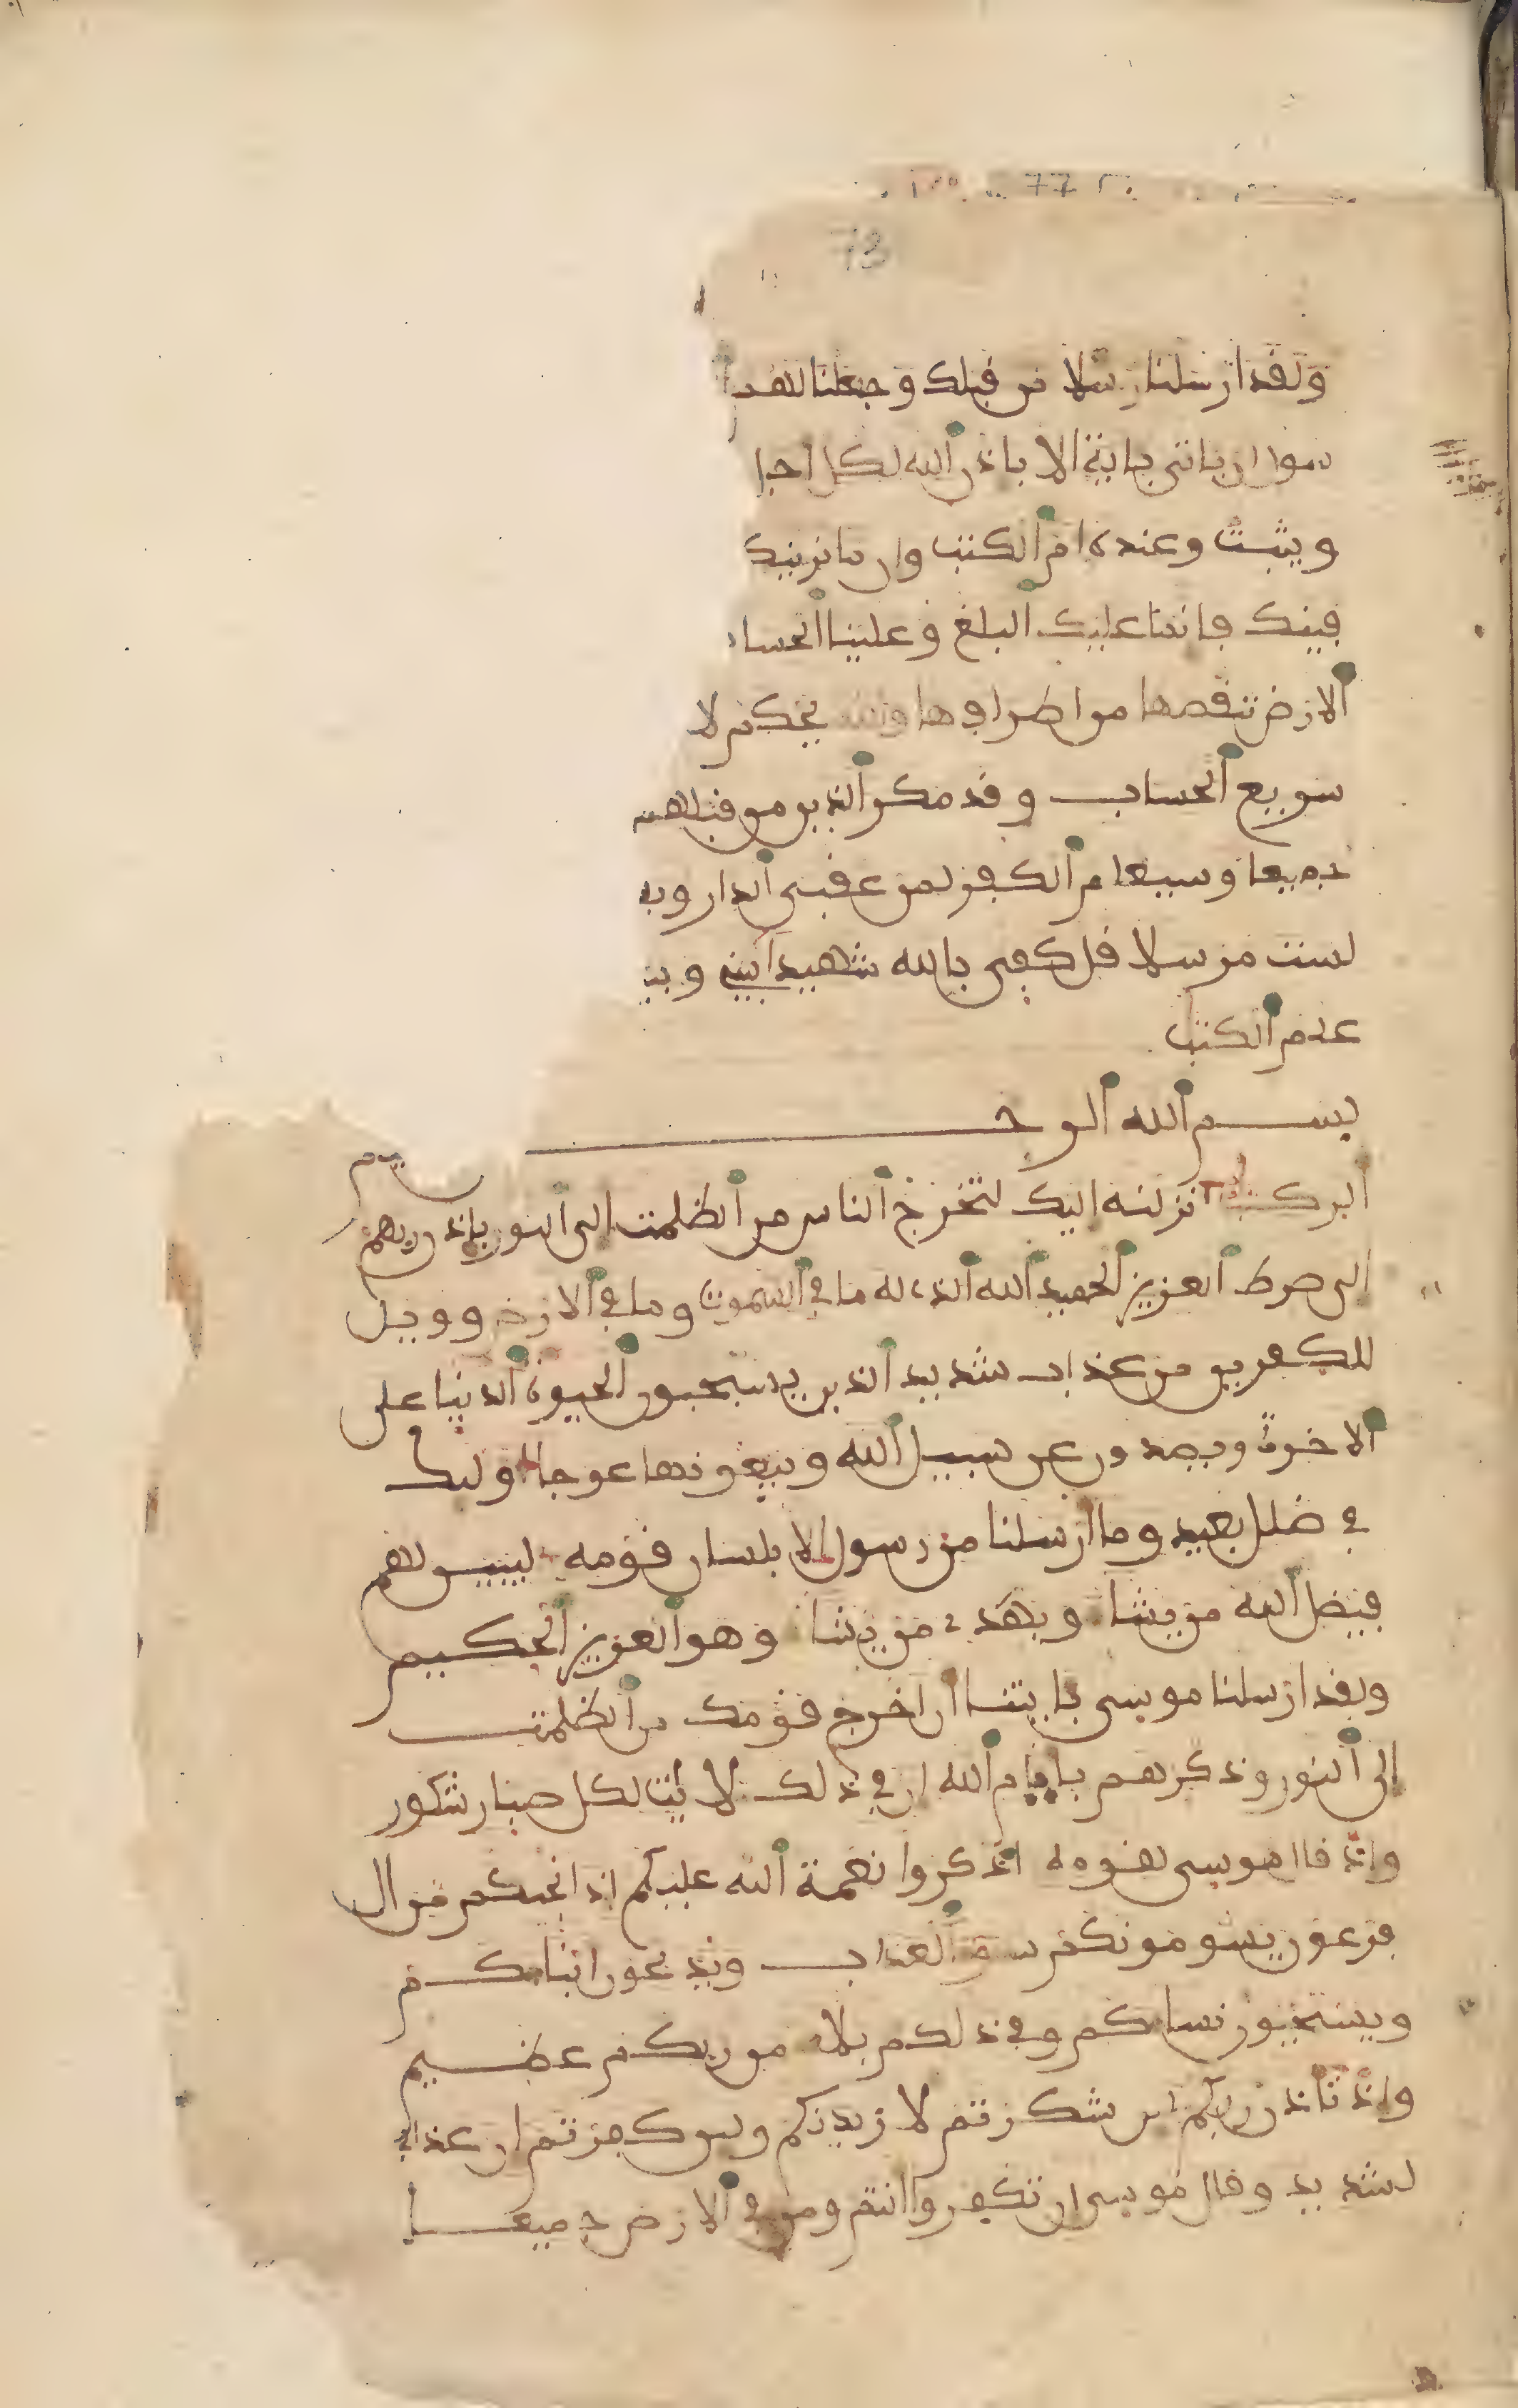 73
ولقد ارسلنا رسلا من قبلك وجعلنا لهم ا
سول ان ياتي باية الا باذن الله لكل اجل
ويثبت وعنده ام الكتب وان ما نرينك
فينك فانما عليك البلغ وعلينا الحسا
الارض ننقصها من اطرافها والله يحكم لا
سريع الحساب وقد مكر الذين من قبلهم
جميعا وسيعلم الكفر لمن عقبى الدار وي
لست مرسلا قل كفى بالله شهيدا بيني وبين
علم الكتب
بسم الله الرحـ
ـيم
الر كتب انزلنه اليك لتخرج الناس من الظلمت الى النور باذن ربهم
الى صرط العزيز الحميد الله الذي له ما في السموت وما في الارض وويل
للكفرين من عذاب شديد الذين يستحبون الحيوة الدنيا على
الاخرة ويصدون عن سبيل الله ويبغونها عوجا اولئك
في ضلل بعيد وما ارسلنا من رسول الا بلسان قومه ليبين لهم
فيضل الله من يشا ويهدي من يشا وهو العزيز الحكيم
ولقد ارسلنا موسى بايتنا ان اخرج قومك من الظلمت
الى النور وذكرهم باييم الله ان في ذلك لايت لكل صبار شكور
واذ قال موسى لقومه اذكروا نعمة الله عليكم اذ انجيكم من ال
فرعون يسومونكم سو العذاب ويذبحون ابناكم
ويستحيون نساكم وفي ذلكم بلا من ربكم عظيم
واذ تاذن ربكم لين شكرتم لازيدنكم ولين كفرتم ان عذابي
لشديد وقال موسى ان تكفروا انتم ومن في الارض جميعا